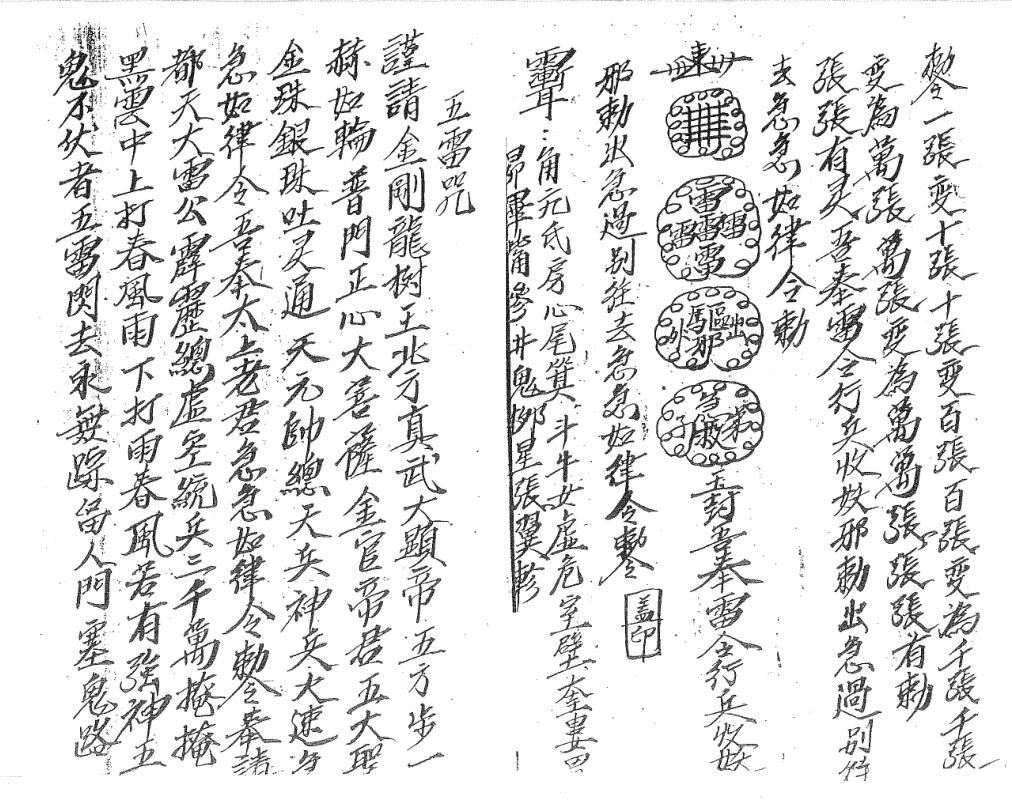 勅令一張變十張十張變百張百張變為千張千張
變為萬張萬張變為萬萬張張張有勅
張張有灵吾奉雷令行兵收妖邪勅出急過別往
去急急如律令勅
東
雷雷雷雷雷
玉封吾奉雷令行兵收妖
邪勅出急過别往去急急如律令勅令
蓋印
角亢氐房心尾箕斗牛女虛危室壁奎婁胃
昴畢觜參井鬼柳星張翼軫
五雷咒
謹請金剛龍樹王北方真武大顕帝五方步一
赫如輪普門正心大菩薩金官帝君五大聖
金珠銀珠吐灵通天元帥總天兵神兵火速
急如律令吾奉太上老君急急如律令勅令奉請
都天大雷公霹靂總虛空統兵三千萬掩掩
黑雲中上打春風雨下打雨春風若有強神五
鬼不伏者五雷閃去永無踪留人門塞鬼路